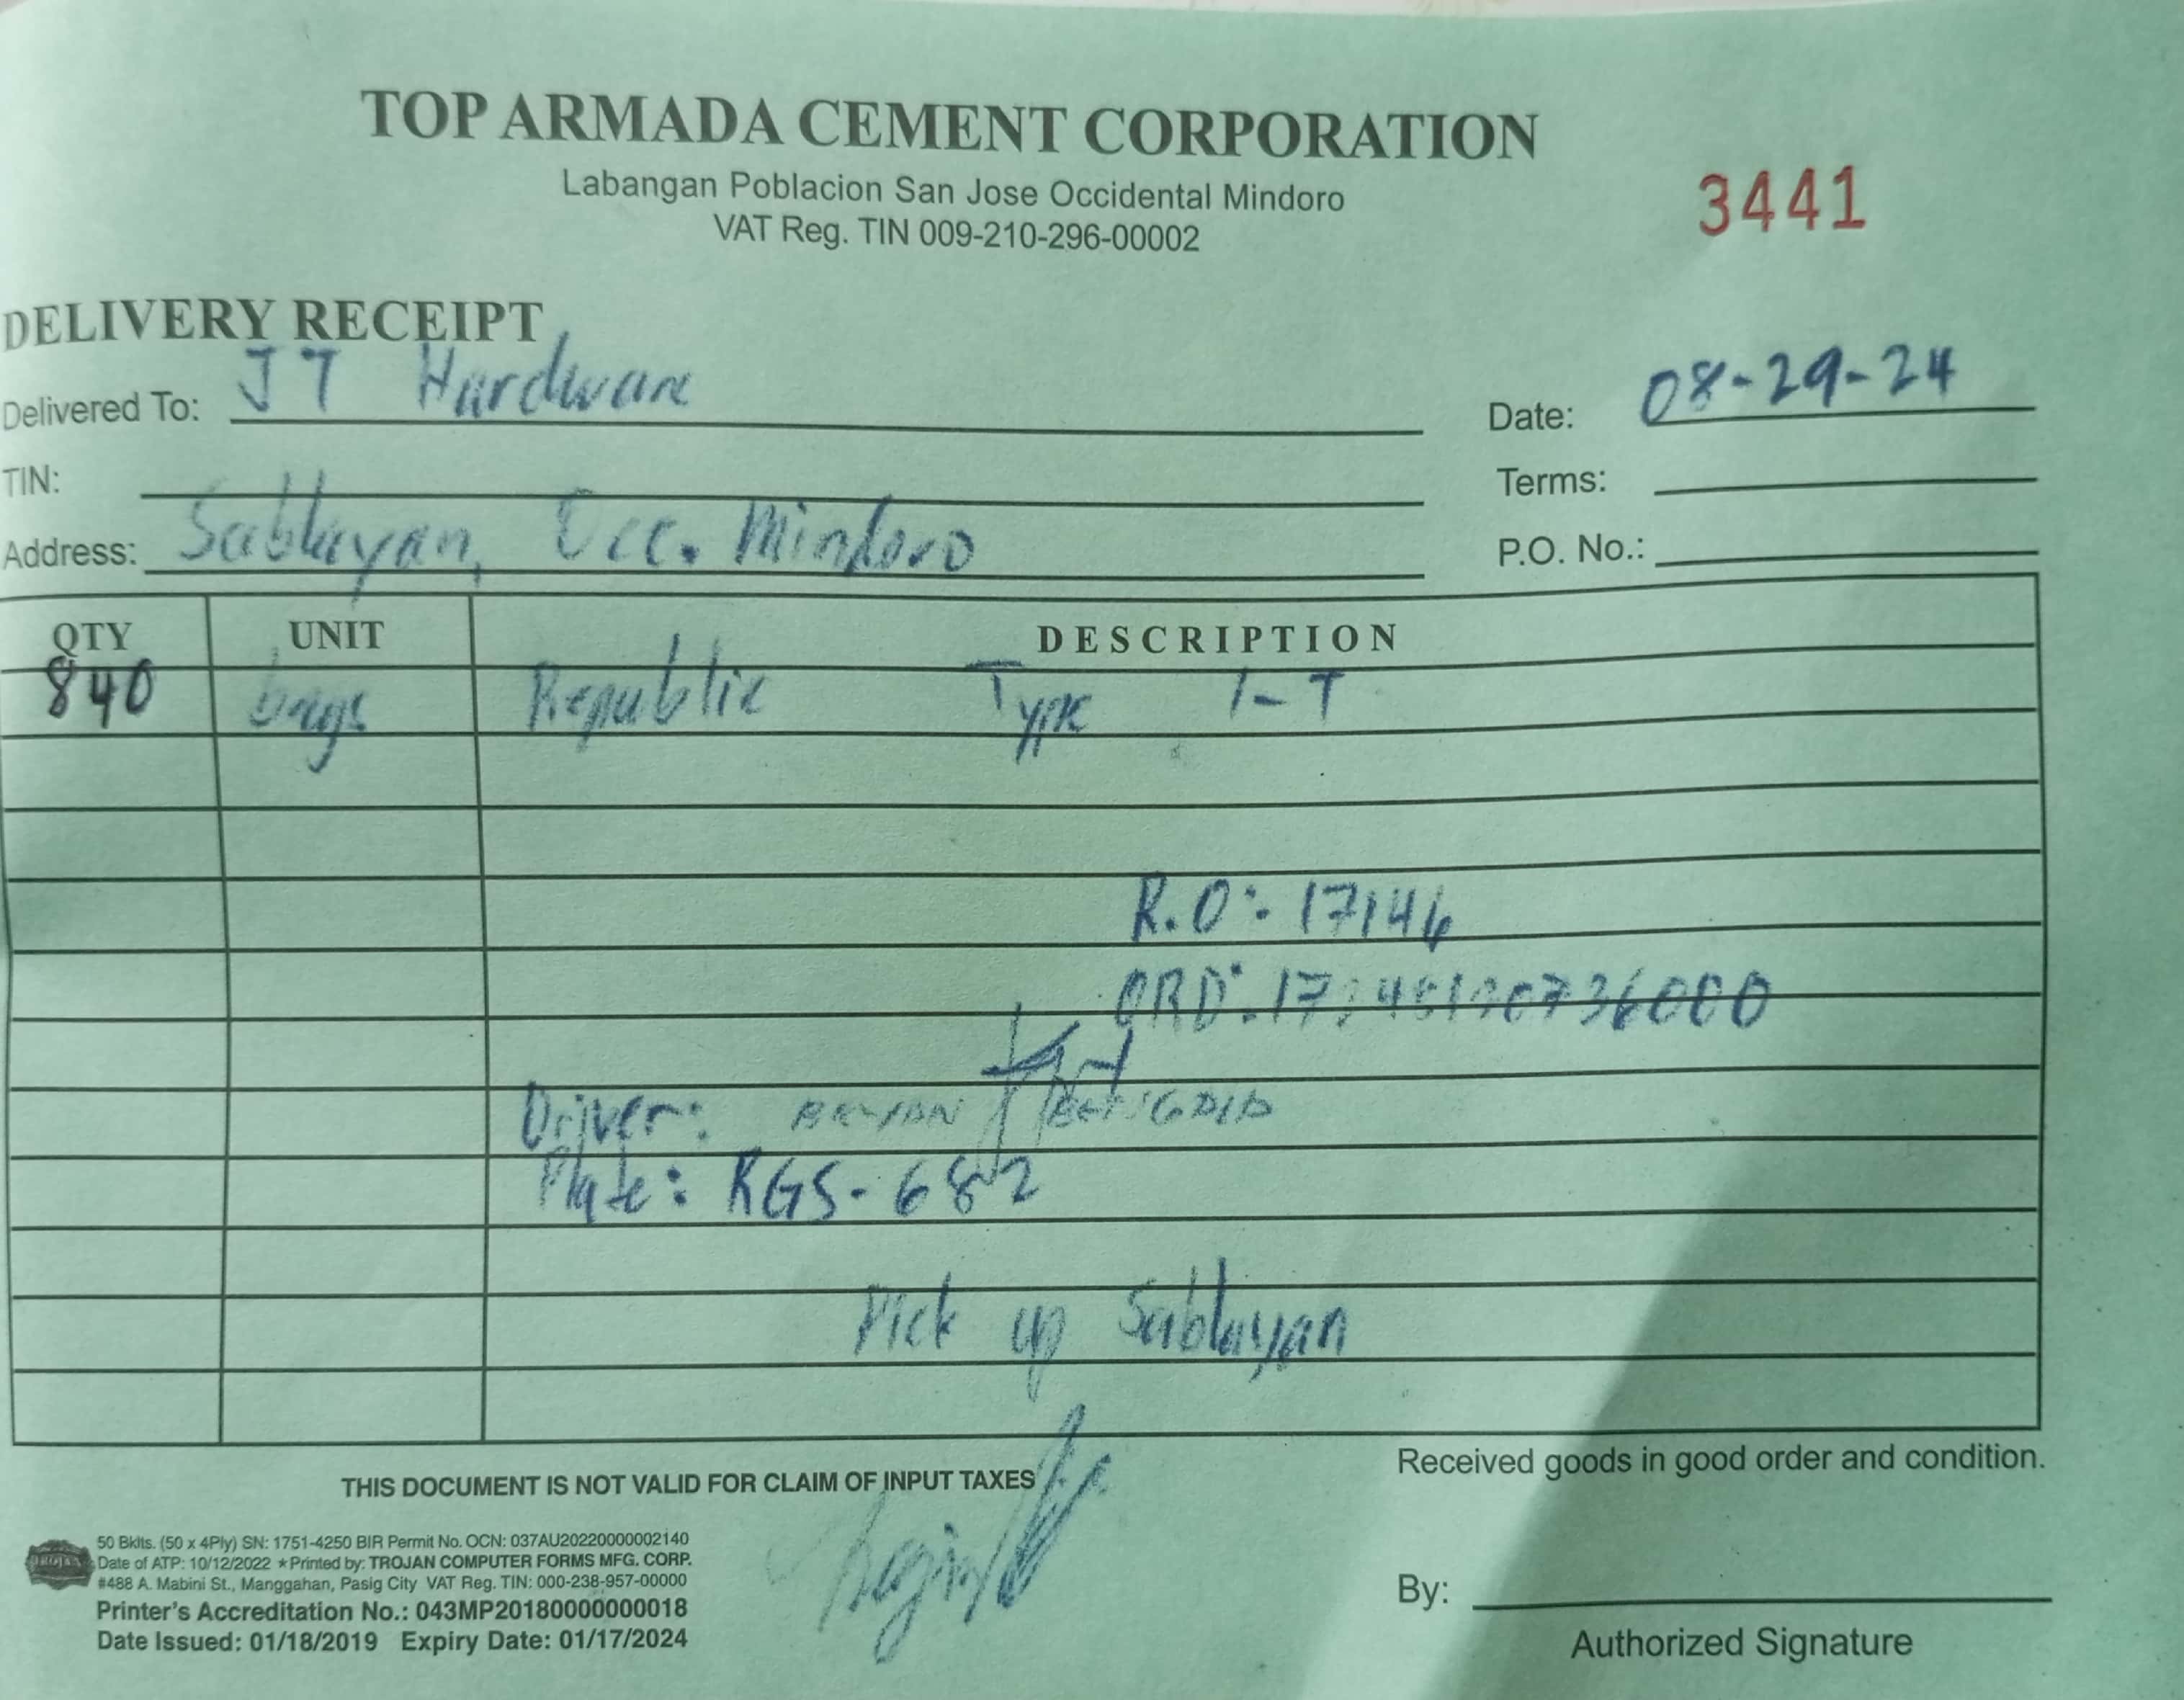 TOP ARMADA CEMENT CORPORATION
Labangan Poblacion San Jose Occidental Mindoro
VAT Reg. TIN 009-210-296-00002
3441
DELIVERY RECEIPT
Delivered To: JT Hardware
Date: 08-29-24
TIN:
Terms:
Address: Sablayan, Occ. Mindoro
P.O. No.:
QTY UNIT DESCRIPTION
840 bags Republic Type 1-T
R.O: 17146
ORD:
Driver: BRYAN
Plate: RGS-682
Pick up Sablayan
Received goods in good order and condition.
THIS DOCUMENT IS NOT VALID FOR CLAIM OF INPUT TAXES
TROJAN
50 Bklts. (50 x 4Ply) SN: 1751-4250 BIR Permit No. OCN: 037AU20220000002140
Date of ATP: 10/12/2022 ★Printed by: TROJAN COMPUTER FORMS MFG. CORP.
#488 A. Mabini St., Manggahan, Pasig City VAT Reg. TIN: 000-238-957-00000
Printer's Accreditation No.: 043MP20180000000018
Date Issued: 01/18/2019 Expiry Date: 01/17/2024
By:
Authorized Signature